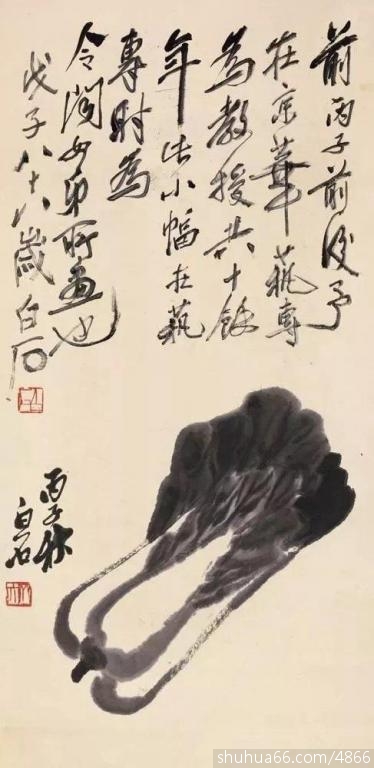 前丙子前後予
在京華藝專
為教授共十餘
年此小幅在藝
專时為
令閨女弟所畫也
戊子八十八歲白石
丙子秋
白石
shuhua66.com/4866